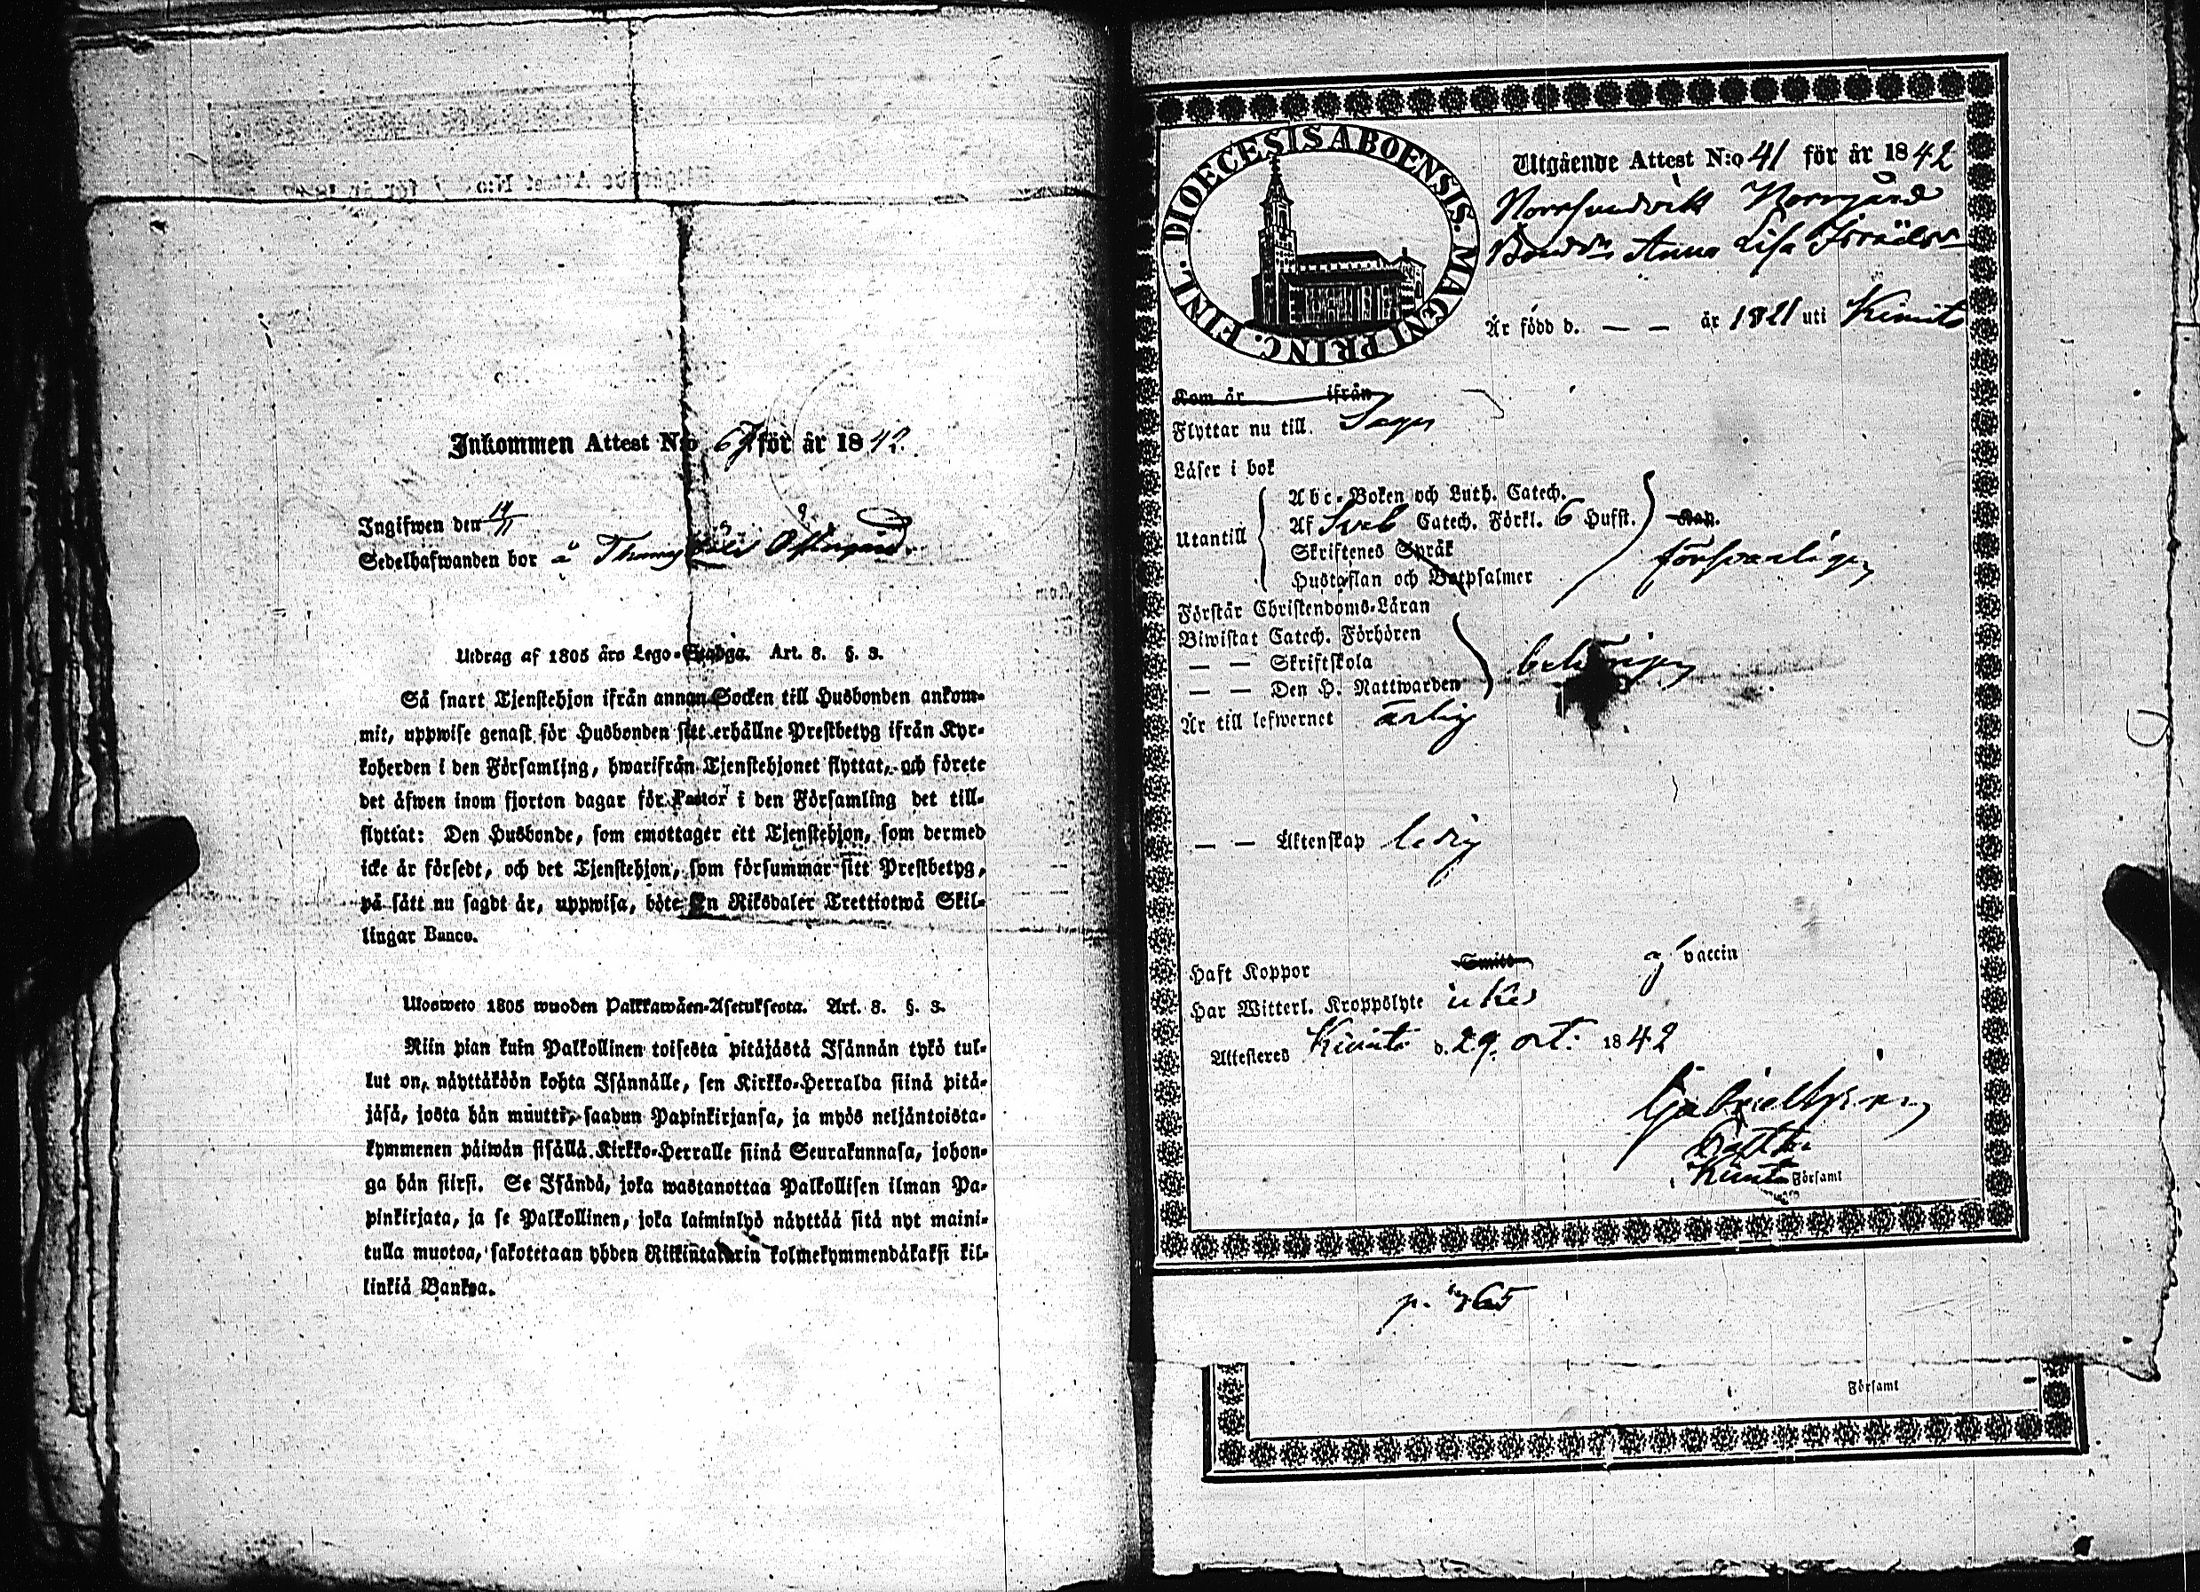 Inkommen Attest N:o 67 för år 1842.
Ingifwen den 14/11
Sedelhafwanden bor å
Utdrag af 1805 års Lego-Stadga. Art. 8. §. 3.
Så snart Tjenstehjon ifrån annan Socken till Husbonden ankom-
mit, uppwise genast för Husbonden sitt erhållne Prestbetyg ifrån Kyr-
koherden i den Församling, hwarifrån Tjenstehjonet flyttat, och förete
det äfwen inom fjorton dagar för Pastor i den Församling det till-
flyttat: Den Husbonde, som emottager ett Tjenstehjon, som dermed
icke är försedt, och det Tjenstehjon, som försummar sitt Prestbetyg,
på sätt nu sagdt är, uppwisa, böte En Riksdaler Trettiotwå Skil-
lingar Banco.
Ulosweto 1805 wuoden Palkkawäen-Asetuksesta. Art. 8. §. 3.
Niin pian kuin Palkollinen toisesta pitäjästä Isännän tykö tul-
lut on, näyttäköön kohta Isännälle, sen Kirkko-Herralda siinä pitä-
jäsä, josta hän muutti, saadun Papinkirjansa, ja myös neljäntoista-
kymmenen päiwän sisällä Kirkko-Herralle siinä Seurakunnasa, johon-
ga hän siirsi. Se Isändä, joka wastanottaa Palkollisen ilman Pa-
pinkirjata, ja se Palkollinen, joka laiminlyö näyttää sitä nyt maini-
tulla muotoa, sakotetaan yhden Riikintalarin kolmekymmendäkaksi kil-
linkiä Bankoa.
DIOECESIS ABOENSIS. MAGNI PRINC. FINL.
Utgående Attest N:o 41 för år 1842
Norrsundvik Norrgård
Bonddr Anna Lisa Israelsdr
Är född d. — — år 1821 uti Kimito
Kom år ifrån
Flyttar nu till. Sagu
Läser i bok
Utantill
Abc-Boken och Luth. Catech.
Af Sveb Catech. Förkl. 6 Hufst.
Skriftenes Språk
Hustaflan och Botpsalmer
försvarligen
Förstår Christendoms-Läran
Biwistat Catech. Förhören
— — Skriftskola
— — Den H. Nattwarden
behörigen
Är till lefwernet ärlig
— — Äktenskap ledig
Haft Koppor vaccin
Har Witterl. Kroppslyte icke
Attesteres Kimito d. 29 oct. 1842
Kimito Församl
p. 65
Församl